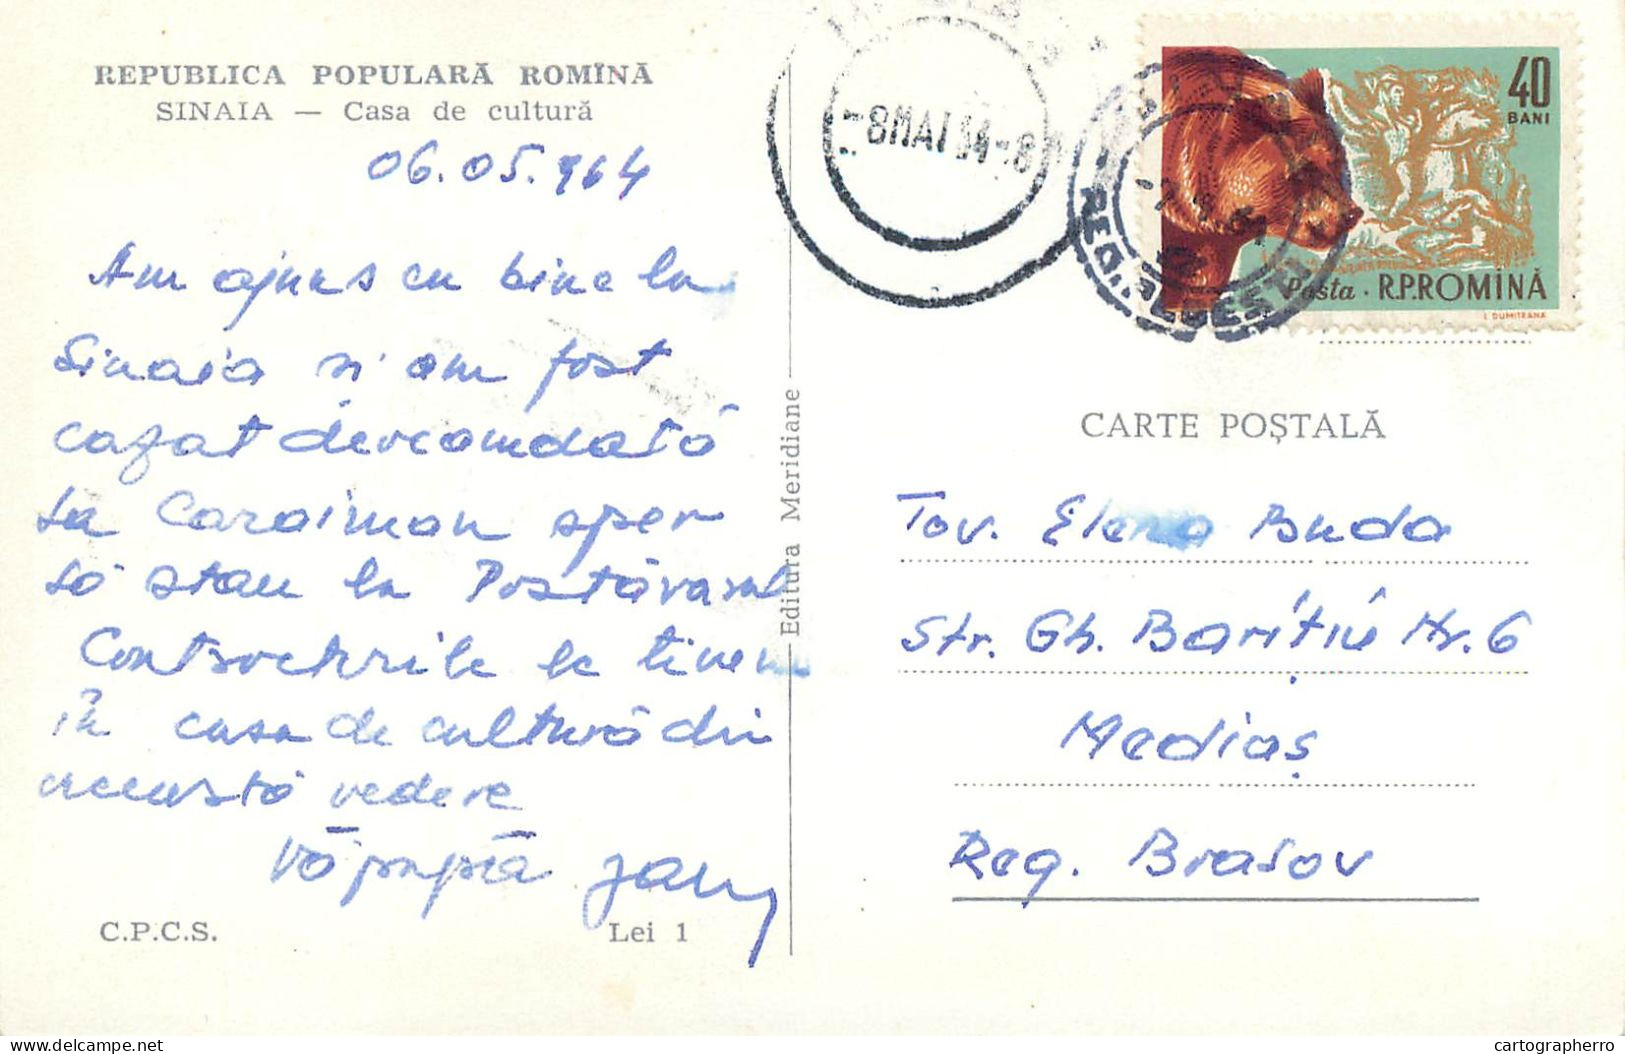 REPUBLICA POPULARĂ ROMÎNĂ
SINAIA — Casa de cultură
06.05.964
Am ajuns cu bine la
Sinaia și am fost
cazat deocamdată
La Caraiman sper
să stau la Postăvarul
Contractările le tinem
în casa de cultură din
această vedere
Vă pupă
C.P.C.S.
Lei 1
Editura Meridiane
-8MAI 64-8
40
BANI
Posta · R.P.ROMÎNĂ
I. DUMITRANA
CARTE POȘTALĂ
Tov. Elena Buda
Str. Gh. Barițiu Nr. 6
Mediaș
Reg. Brasov
delcampe.net
cartographerro